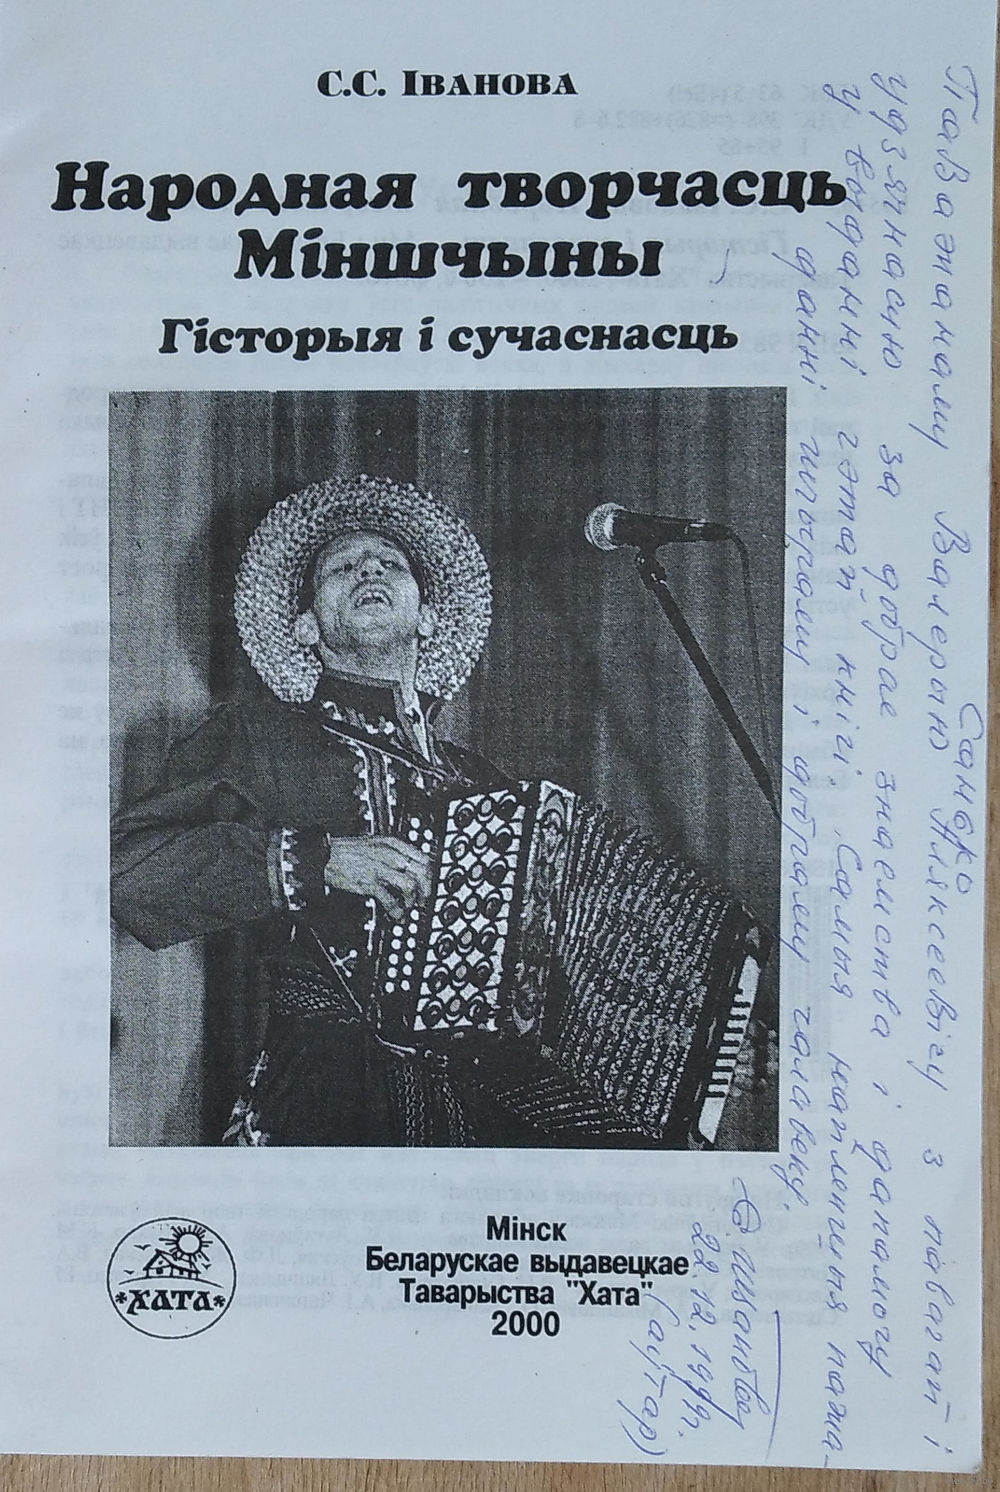 С.С. Іванова
Народная творчасць
Міншчыны
Гісторыя і сучаснасць
Мінск
Беларускае выдавецкае
Таварыства "Хата"
2000
*ХАТА*
Паважанаму Валерыю Аляксеевічу
Санько
з павагай і
удзячнасцю за добрае знаемства і дапамогу
у выданні гэтай кнігі. Самыя найлепшыя пажа-
данні шчыраму і добраму чалавеку.
22.12.1999г.
(аўтар)